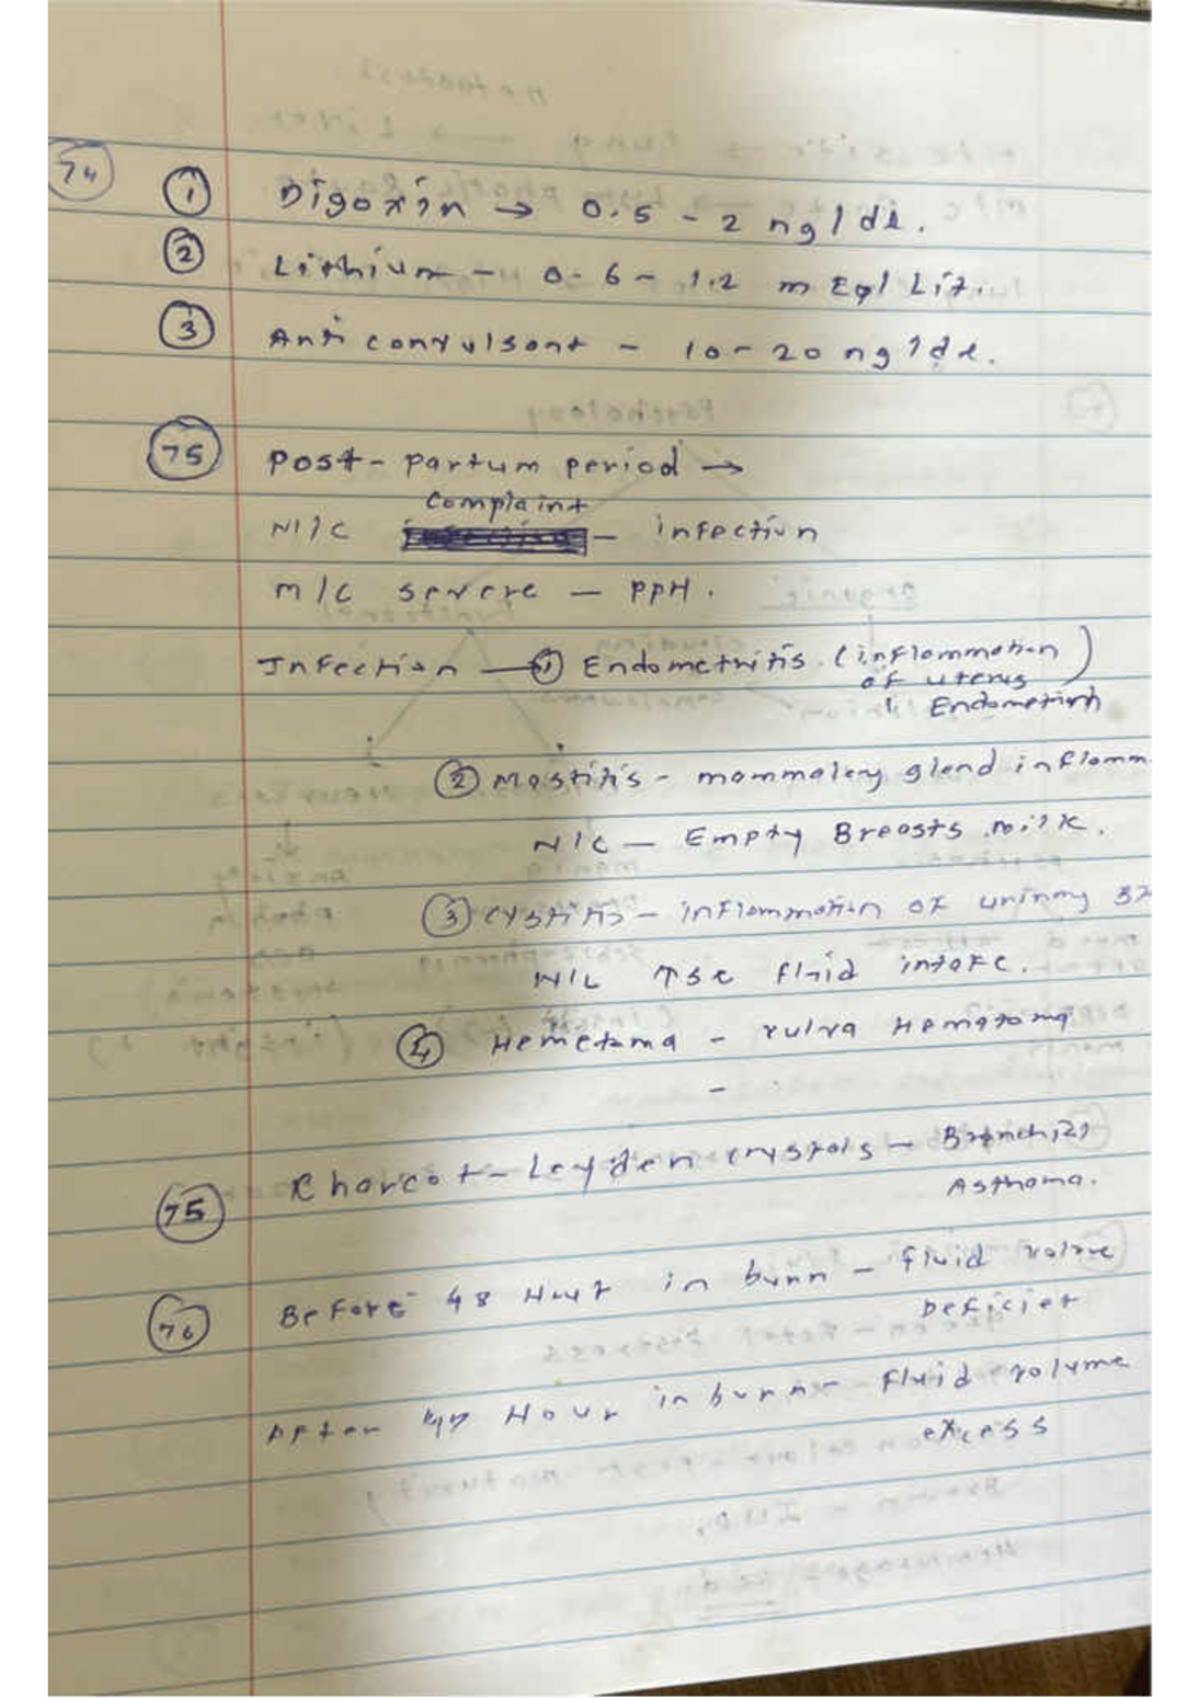 74
① Digoxin → 0.5 - 2 ng/dl.
② Lithium - 0-6 - 1.2 mEq/Lit.
③ Anti convulsant - 10-20 ng/dl.
75 Post-partum period →
Complaint
N/C - infection
M/C severe - PPH.
Infection → ① Endometritis (inflammation
of uterus
Endometium
② Mastitis - mammalary gland inflamm
N/C - Empty Breasts milk.
③ cystitis - inflammation of urinary
N/C ↑se fluid intake.
④ Hemetama - vulva Hematoma
-
75 Charcot-Leyden crystals - Bronchial
Asthama.
76 Before 48 Hour in burn - fluid volume
Deficiet
After 48 Hour in burn - fluid volume
excess